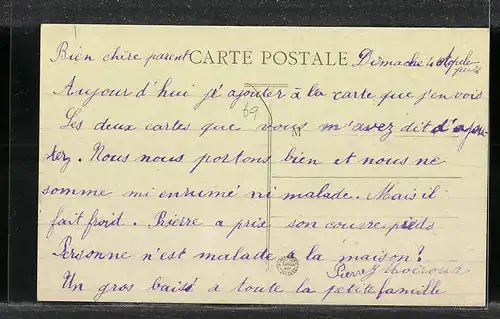 Bien chère parent CARTE POSTALE Dimache 4
Aujourd'hui j'ajouter à la carte que j'envois
69
Les deux cartes que vous m'avez dit d'ajou
M
tez. Nous nous portons bien et nous ne
somme ni enrumé ni malade. Mais il
fait froid. Pierre a pris son couvre pieds
Personne n'est malade a la maison?
Pierre
Un gros baisé a toute la petite famille